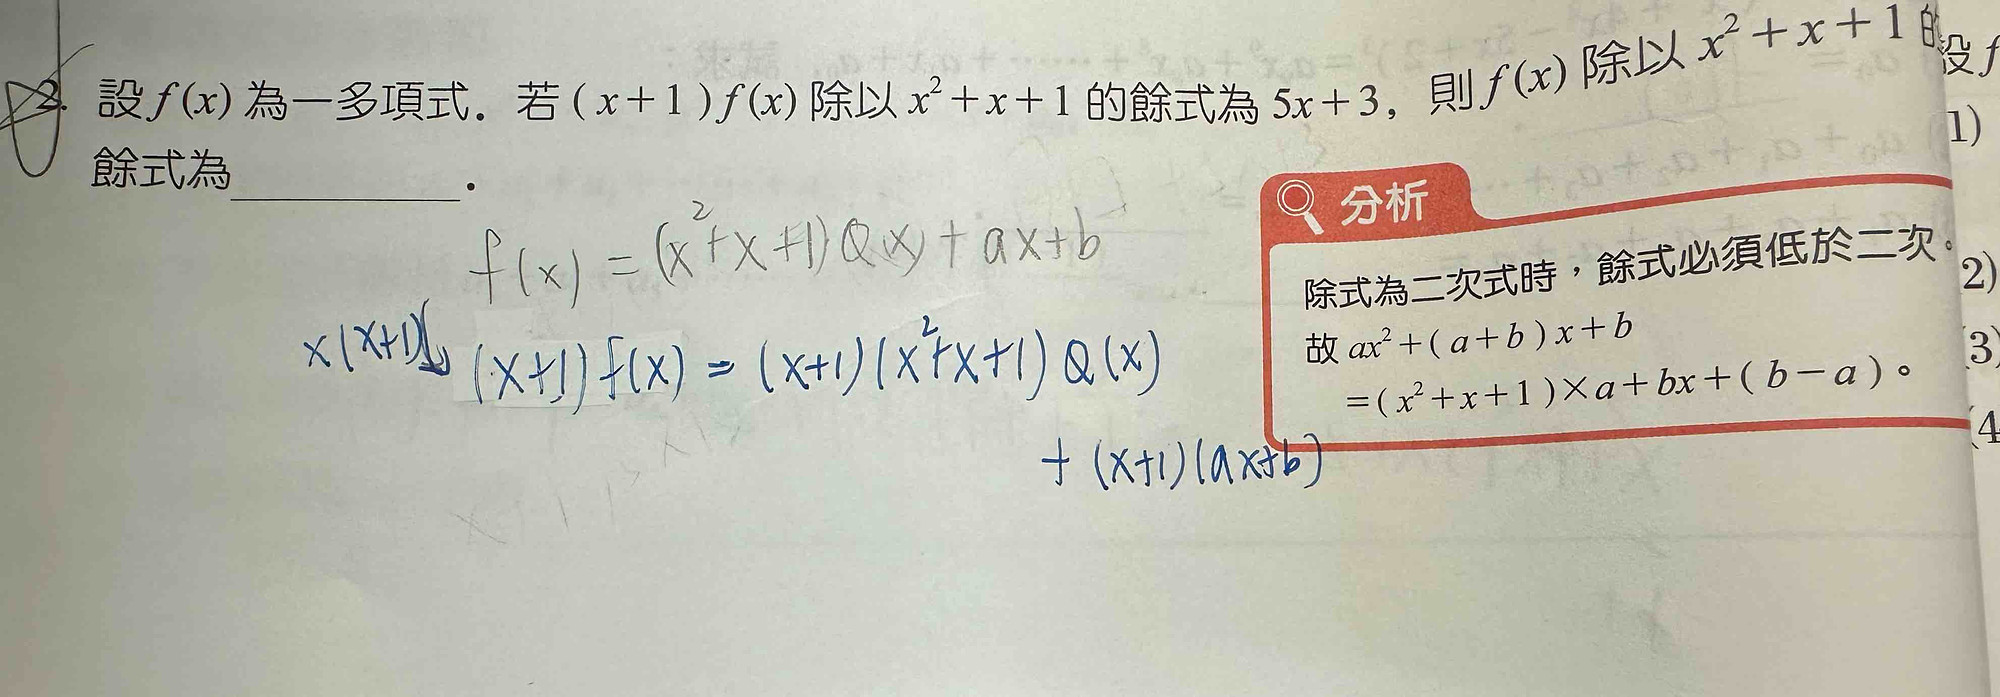 2. 設 f(x) 為一多項式．若 (x+1)f(x) 除以 x²+x+1 的餘式為 5x+3，則 f(x) 除以 x²+x+1 的
餘式為________．
f(x) = (x²+x+1)Q(x)+ax+b
x(x+1)
(x+1)f(x) = (x+1)(x²+x+1)Q(x)
+(x+1)(ax+b)
分析
除式為二次式時，餘式必須低於二次。
故 ax²+(a+b)x+b
=(x²+x+1)×a+bx+(b-a)。
設 f
1)
2)
(3)
(4